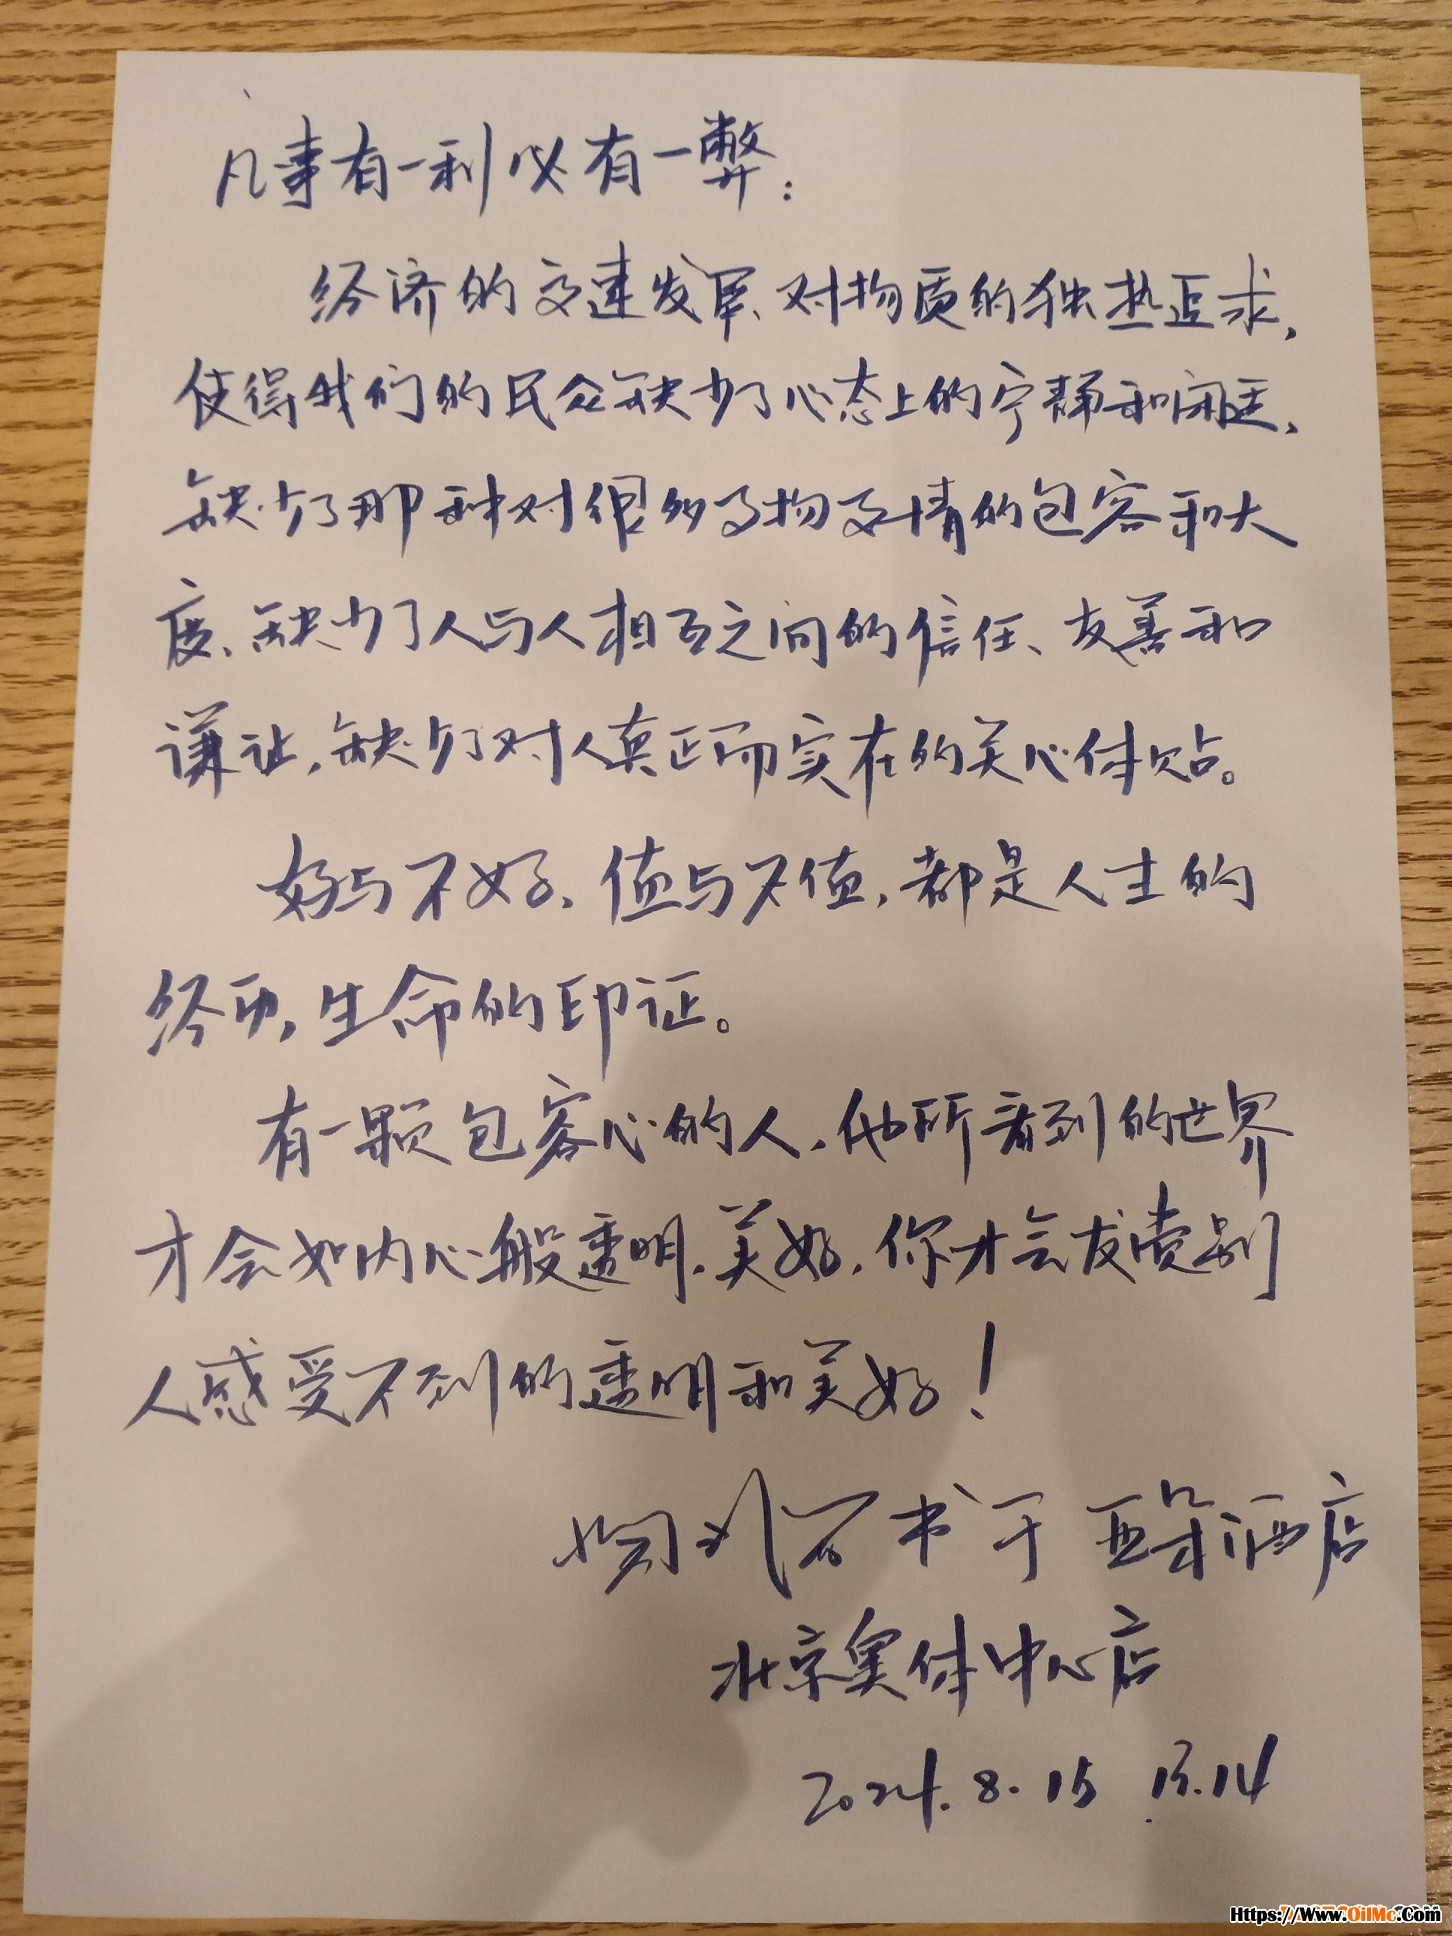 凡事有一利必有一弊：
经济的高速发展、对物质的狂热追求，
使得我们的民众缺少了心态上的宁静和闲适、
缺少了那种对很多事物事情的包容和大
度、缺少了人与人相互之间的信任、友善和
谦让，缺少了对人真正而实在的关心体贴。
好与不好、值与不值，都是人生的
经历，生命的印证。
有一颗包容心的人，他所看到的世界
才会如内心般透明、美好，你才会发觉别
人感受不到的透明和美好！
书于亚朵酒店
北京奥体中心店
2024.8.15
Https://Www.OilMc.Com